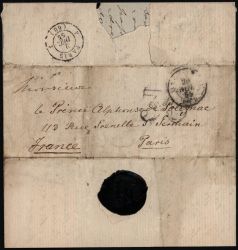 Monsieur
le Prince Alphonse de Polignac
113 Rue Grenelle St Germain
France Paris